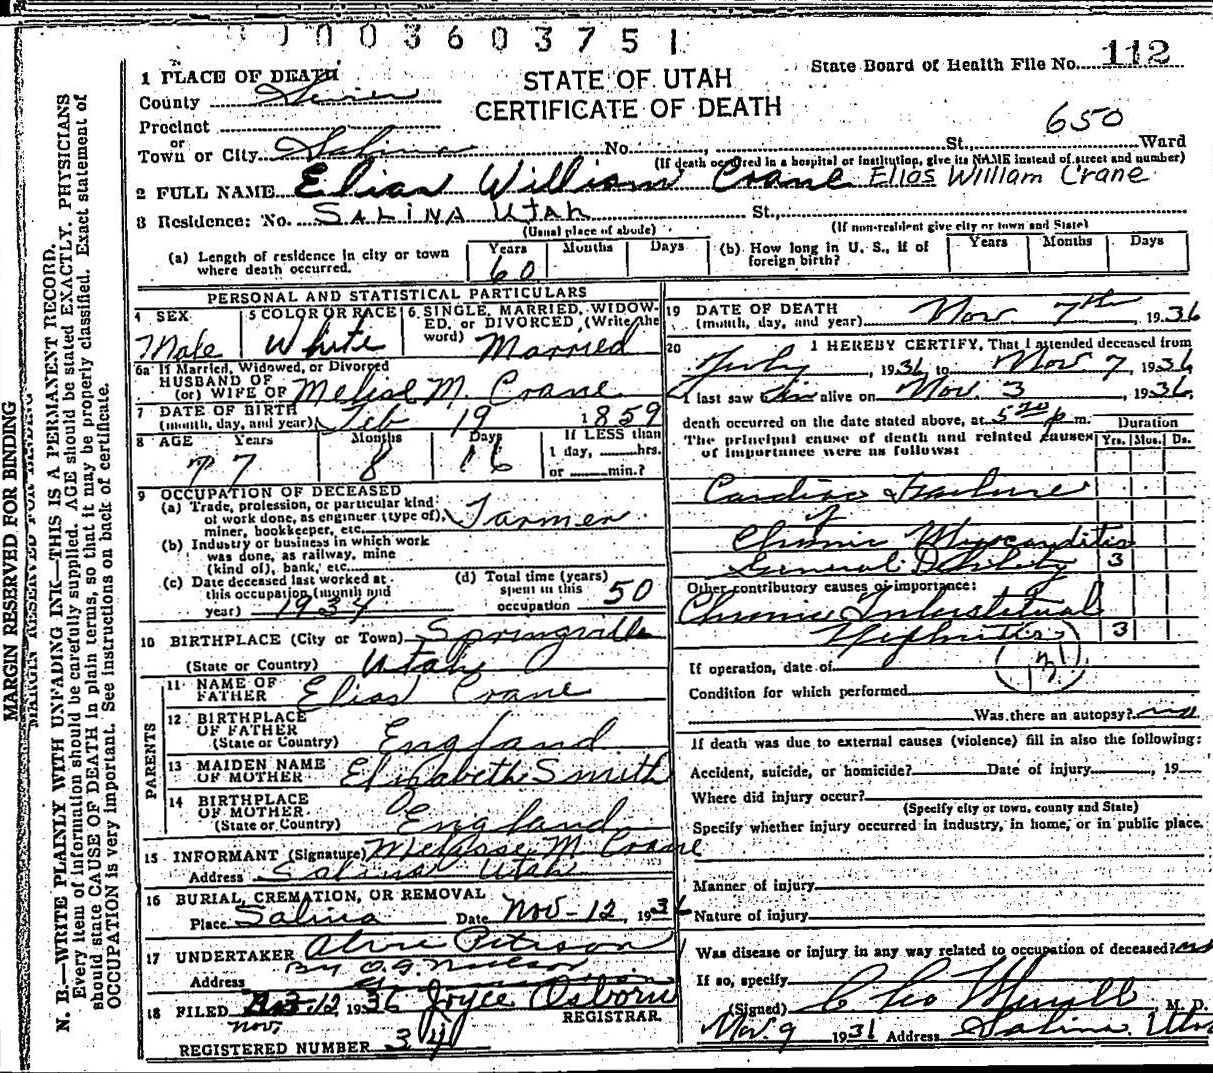 0003603751
State Board of Health File No. 112
STATE OF UTAH
CERTIFICATE OF DEATH
1 PLACE OF DEATH
County Sevier
Precinct
or
Town or City Salina No. , St., Ward
650
(If death occurred in a hospital or institution, give its NAME instead of street and number)
2 FULL NAME Elias William Crane Elias William Crane
3 Residence: No. SALINA Utah St.,
(Usual place of abode) (If non-resident give city or town and State)
(a) Length of residence in city or town where death occurred. Years 60 Months Days
(b) How long in U. S., if of foreign birth? Years Months Days
PERSONAL AND STATISTICAL PARTICULARS
4 SEX Male
5 COLOR OR RACE White
6. SINGLE, MARRIED, WIDOWED, or DIVORCED (Write the word) Married
6a If Married, Widowed, or Divorced
HUSBAND OF
(or) WIFE OF M. Crane
7 DATE OF BIRTH
(month, day, and year) Feb 19 1859
8 AGE Years 77 Months 8 Days 16
If LESS than
1 day, hrs.
or min.?
9 OCCUPATION OF DECEASED
(a) Trade, profession, or particular kind of work done, as engineer (type of), miner, bookkeeper, etc. Farmer
(b) Industry or business in which work was done, as railway, mine (kind of), bank, etc.
(c) Date deceased last worked at this occupation (month and year) 1934
(d) Total time (years) spent in this occupation 50
10 BIRTHPLACE (City or Town) Springville
(State or Country) Utah
PARENTS
11 NAME OF FATHER Elias Crane
12 BIRTHPLACE OF FATHER (State or Country) England
13 MAIDEN NAME OF MOTHER Elizabeth Smith
14 BIRTHPLACE OF MOTHER (State or Country) England
15 INFORMANT (Signature) M. Crane
Address Salina Utah
16 BURIAL, CREMATION, OR REMOVAL
Place Salina Date Nov-12, 1936
17 UNDERTAKER
Address
18 FILED 12 1936 Joyce Osborn
Nov. REGISTRAR.
REGISTERED NUMBER 34
19 DATE OF DEATH
(month, day, and year) Nov 7th, 1936
20 I HEREBY CERTIFY, That I attended deceased from
July, 1936, to Nov 7, 1936
I last saw him alive on Nov. 3, 1936,
death occurred on the date stated above, at 5 20 p m.
The principal cause of death and related causes of importance were as follows:
Duration
Yrs. Mos. Ds.
Cardiac Failure
Chronic Myocarditis
General Debility 3
Other contributory causes of importance:
Chronic Interstitial
Nephritis 3
131
If operation, date of
Condition for which performed
Was there an autopsy? no
If death was due to external causes (violence) fill in also the following:
Accident, suicide, or homicide? Date of injury , 19
Where did injury occur?
(Specify city or town, county and State)
Specify whether injury occurred in industry, in home, or in public place.
Manner of injury
Nature of injury
Was disease or injury in any way related to occupation of deceased? no
If so, specify
(Signed) Merrill M. D.
Nov. 9 1936 Address Salina Utah
MARGIN RESERVED FOR BINDING
MARGIN RESERVED FOR BINDING
N. B.—WRITE PLAINLY WITH UNFADING INK—THIS IS A PERMANENT RECORD.
Every item of information should be carefully supplied. AGE should be stated EXACTLY. PHYSICIANS
should state CAUSE OF DEATH in plain terms, so that it may be properly classified. Exact statement of
OCCUPATION is very important. See instructions on back of certificate.